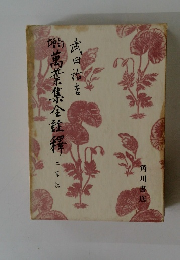 武田祐吉
増訂 萬葉集全註釋
角川書店